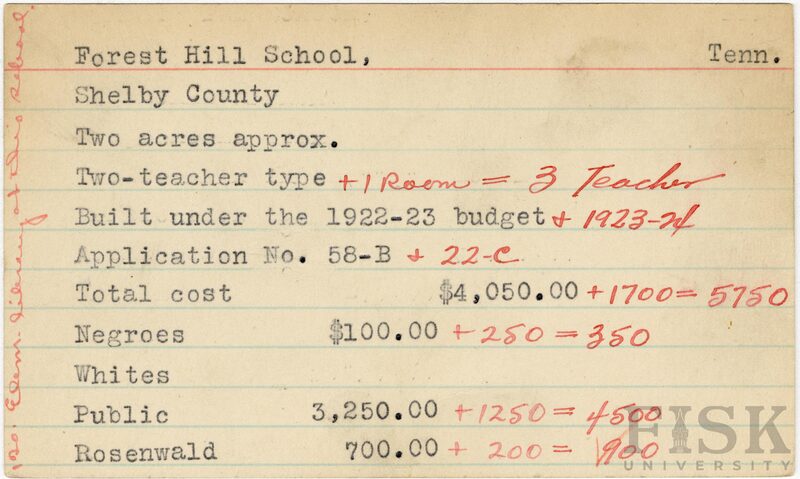 Forest Hill School, Tenn.
Shelby County
Two acres approx.
Two-teacher type + 1 Room = 3 Teacher
Built under the 1922-23 budget + 1923-24
Application No. 58-B + 22-C
Total cost $4,050.00 + 1700 = 5750
Negroes $100.00 + 250 = 350
Whites
Public 3,250.00 + 1250 = 4500
Rosenwald 700.00 + 200 = 900
Elem. library at this school.
FISK
UNIVERSITY